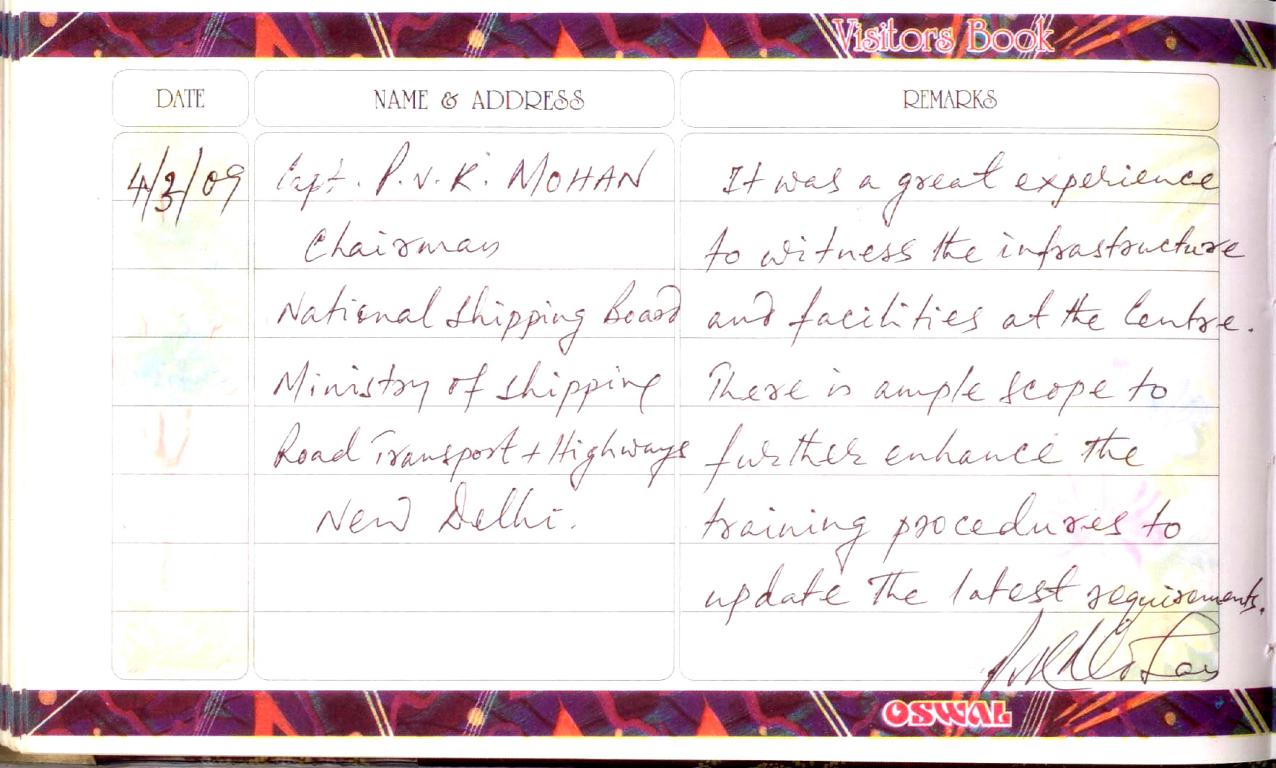 Visitors Book
DATE NAME & ADDRESS REMARKS
4/3/09
Capt. P.V.K. MOHAN
Chairman
National Shipping Board
Ministry of Shipping
Road Transport + Highways
New Delhi.
It was a great experience
to witness the infrastructure
and facilities at the Centre.
There is ample scope to
further enhance the
training procedures to
update the latest requirements.
OSWAL